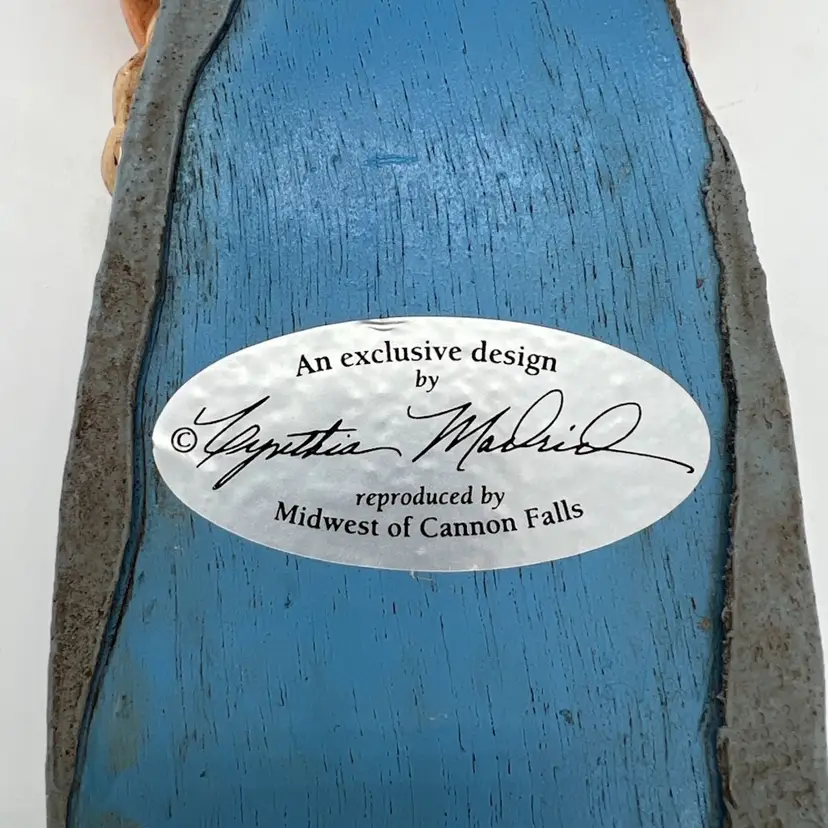 An exclusive design
by
© Cynthia Madrid
reproduced by
Midwest of Cannon Falls